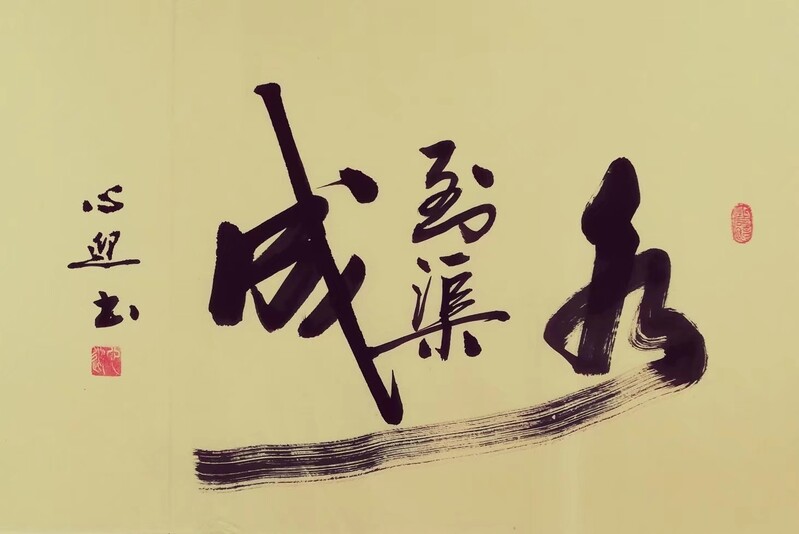 水到渠成
心迎书